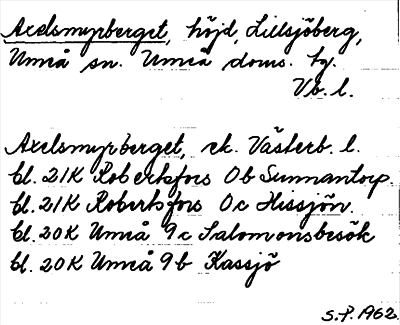 Axelsmyrberget, höjd, Lillsjöberg,
Umeå sn. Umeå doms. hg.
Vb. l.
Axelsmyrberget, ek. Västerb. l.
bl. 21K Robertsfors 0b Sunnantorp.
bl. 21K Robertsfors 0c Hissjön.
bl. 20K Umeå 9c Salomonsbesök
bl. 20K Umeå 9b Kassjö
S.P. 1962